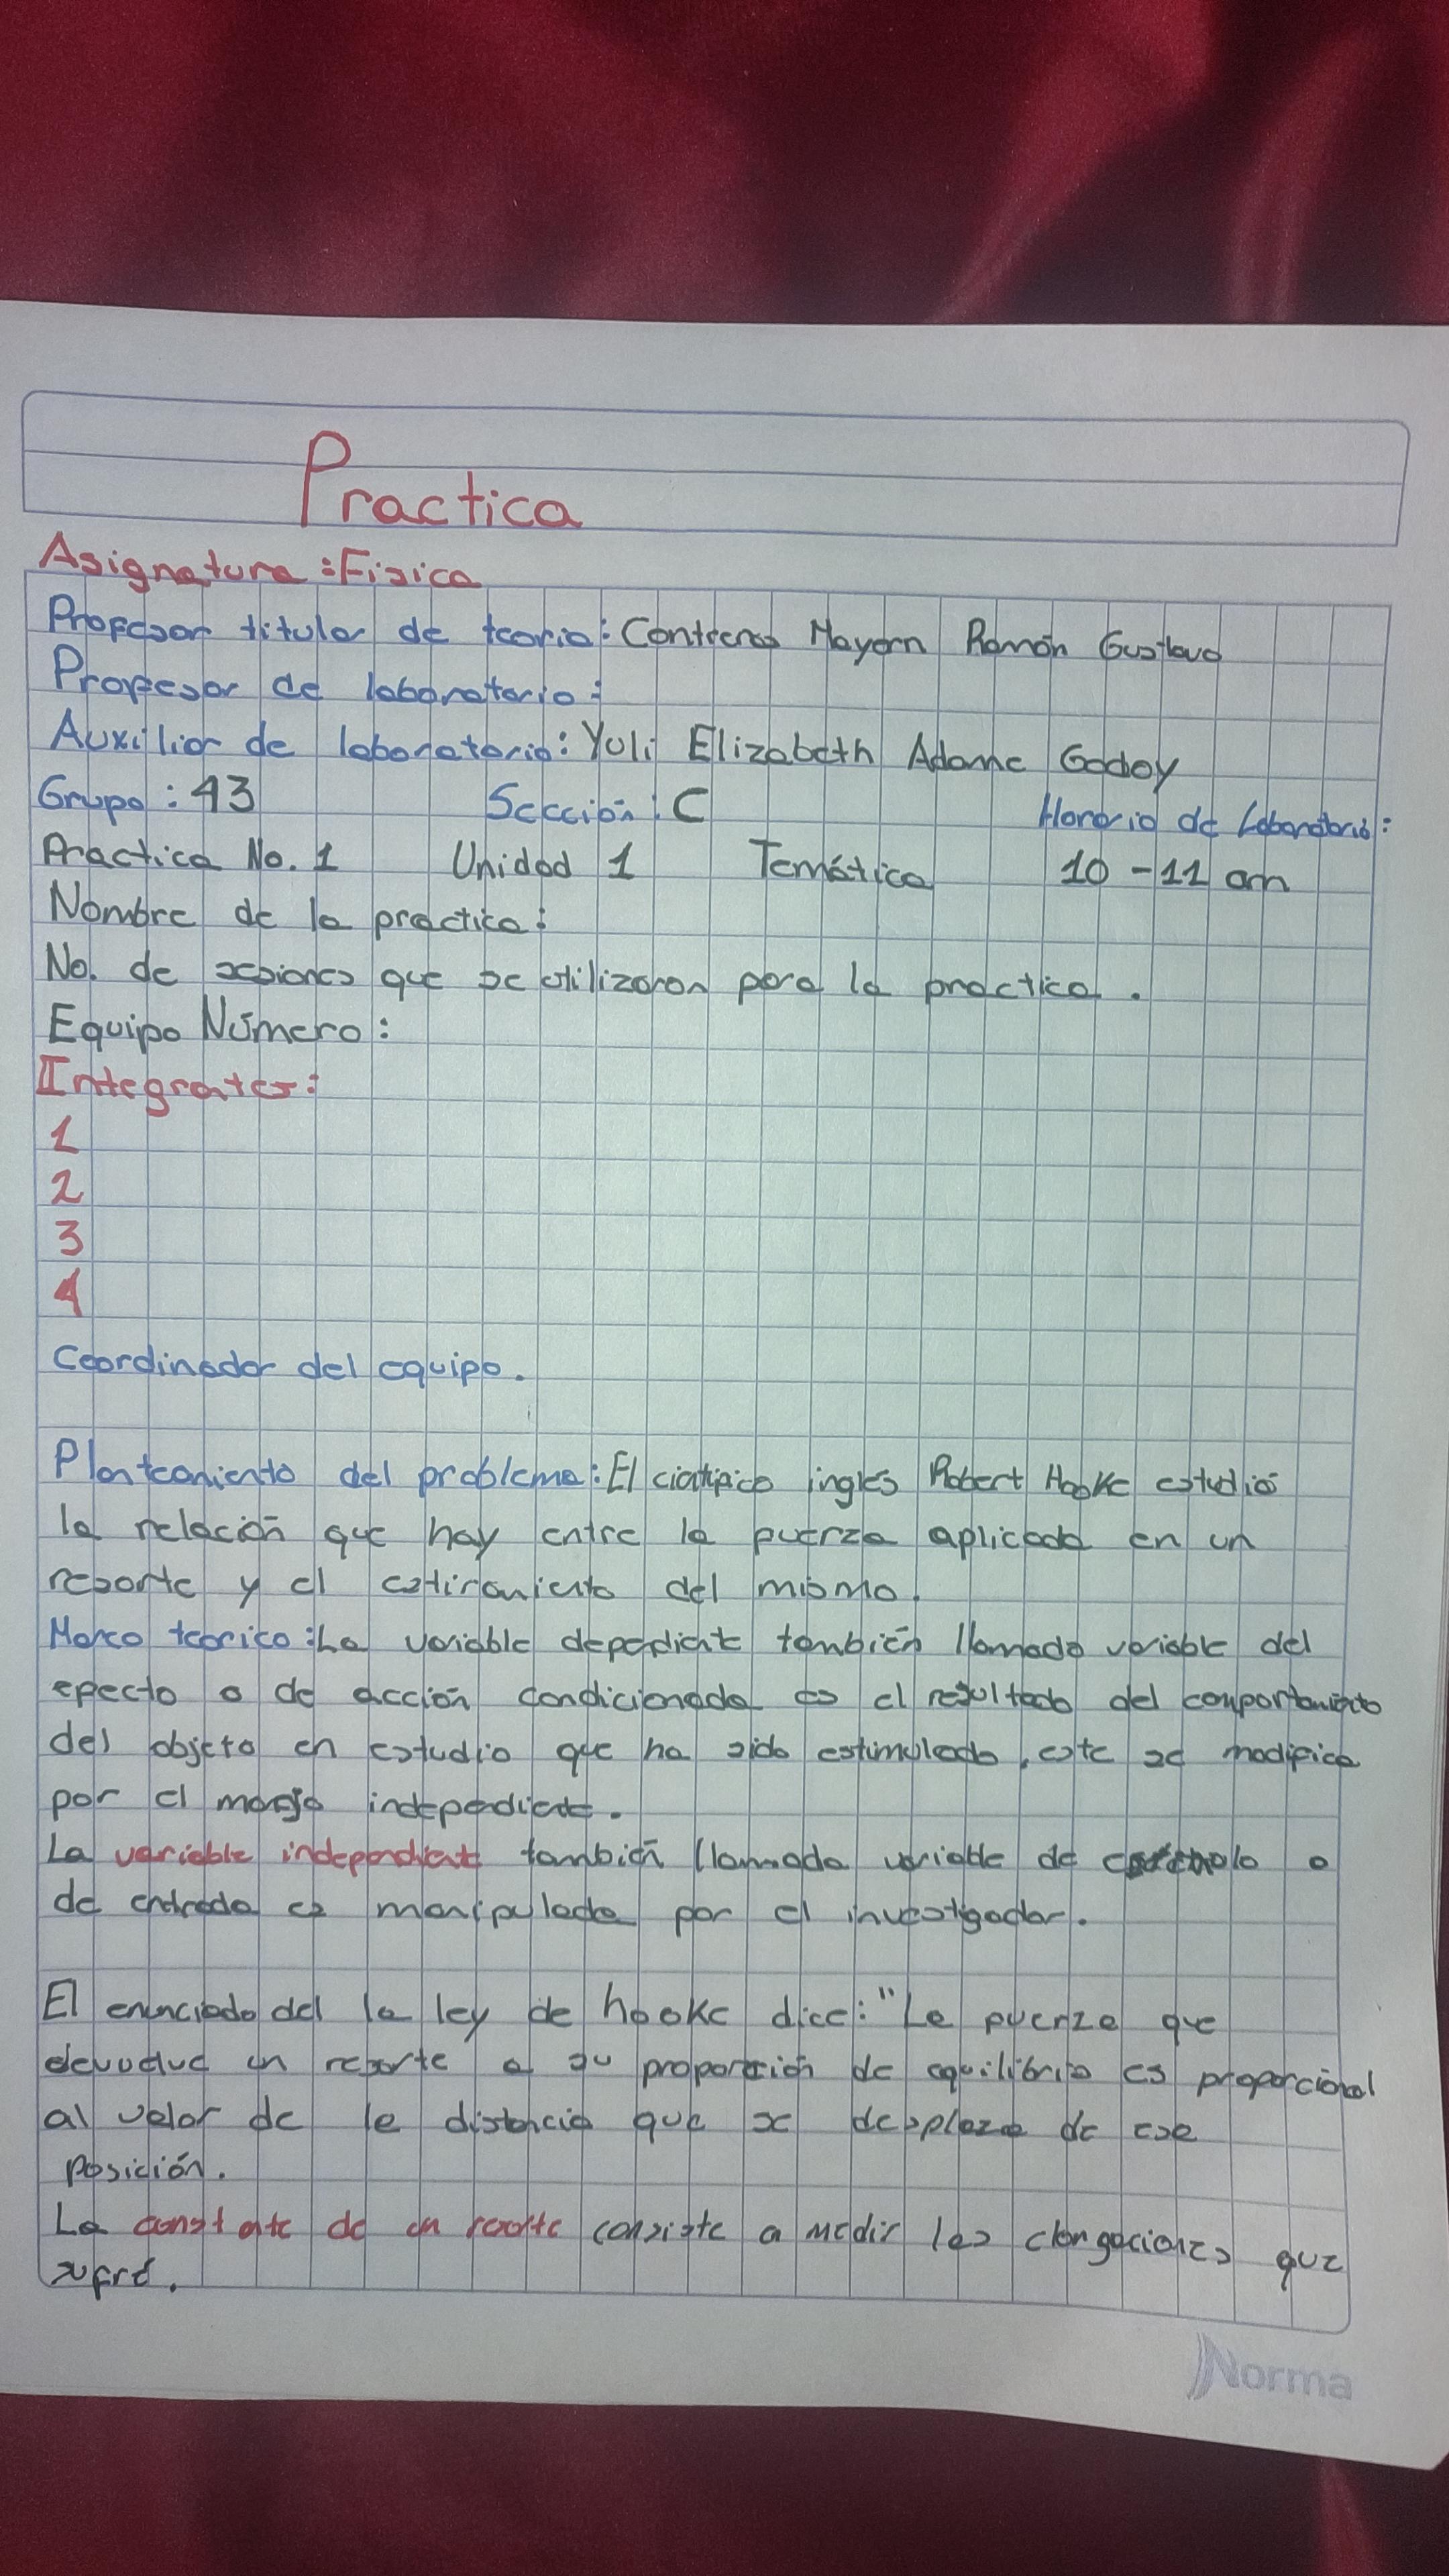 Practica
Asignatura: Fisica
Profesor titular de teoria: Contreras Mayorn Ramón Gustavo
Profesor de laboratorio:
Auxiliar de laboratorio: Yuli Elizabeth Adame Godoy
Grupo: 43 Sección: C Horario de Laboratorio:
Practica No. 1 Unidad 1 Temática 10 - 11 am
Nombre de la practica:
No. de sesiones que se utilizaron para la practica.
Equipo Número:
Integrates:
1
2
3
4
Coordinador del equipo.
Planteamiento del problema: El ciatifico inglés Robert Hooke estudió
la relación que hay entre la fuerza aplicada en un
resorte y el estiramiento del mismo.
Marco teorico: La variable dependiente también llamada variable del
efecto o de acción condicionada es el resultado del comportamiento
del objeto en estudio que ha sido estimulado, este se modifica
por el manejo independiente.
La variable independiente también llamada variable de o
de entrada es manipulada por el investigador.
El enunciado del la ley de hooke dice: "La fuerza que
devuelve un resorte a su proporción de equilibrio es proporcional
al valor de la distancia que se desplaza de esa
posición.
La constate de un resorte consiste a medir las elongaciones que
sufre.
Norma